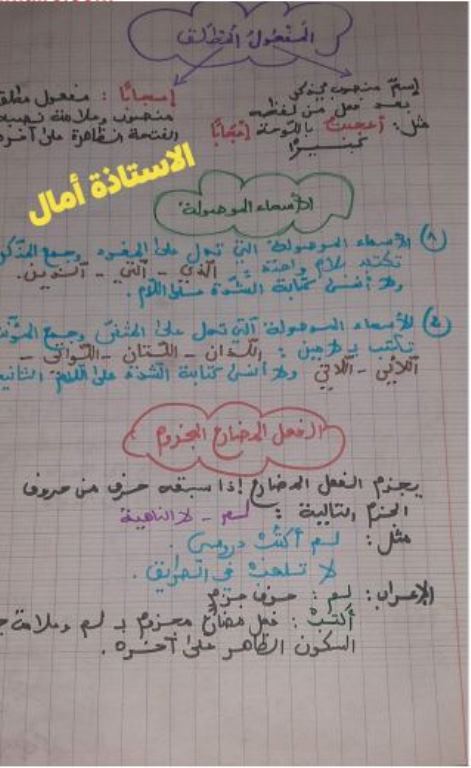 المفعول المطلق
إسم منصوب يذكر
بعد فعل من لفظه
مثل: أعجبت باللوحة إعجابًا
كبيرًا
إعجابًا: مفعول مطلق
منصوب وعلامة نصبه
الفتحة الظاهرة على آخره
الاستاذة أمال
الأسماء الموصولة
1) الأسماء الموصولة التي تدل على المفرد وجمع المذكر
تكتب بلام واحدة: الذي - التي - الذين.
ولا أنسى كتابة الشدة على اللام.
2) الأسماء الموصولة التي تدل على المثنى وجمع المؤنث
تكتب بلامين: اللذان - اللتان - اللواتي -
اللائي - اللاتي ولا أنسى كتابة الشدة على اللام الثانية
الفعل المضارع المجزوم
يجزم الفعل المضارع إذا سبقه حرف من حروف
الجزم التالية: لم - لا الناهية
مثل: لم أكتبْ دروسي.
لا تلعبْ في الطريق.
الإعراب: لم: حرف جزم
أكتبْ: فعل مضارع مجزوم بـ لم وعلامة
السكون الظاهر على آخره.